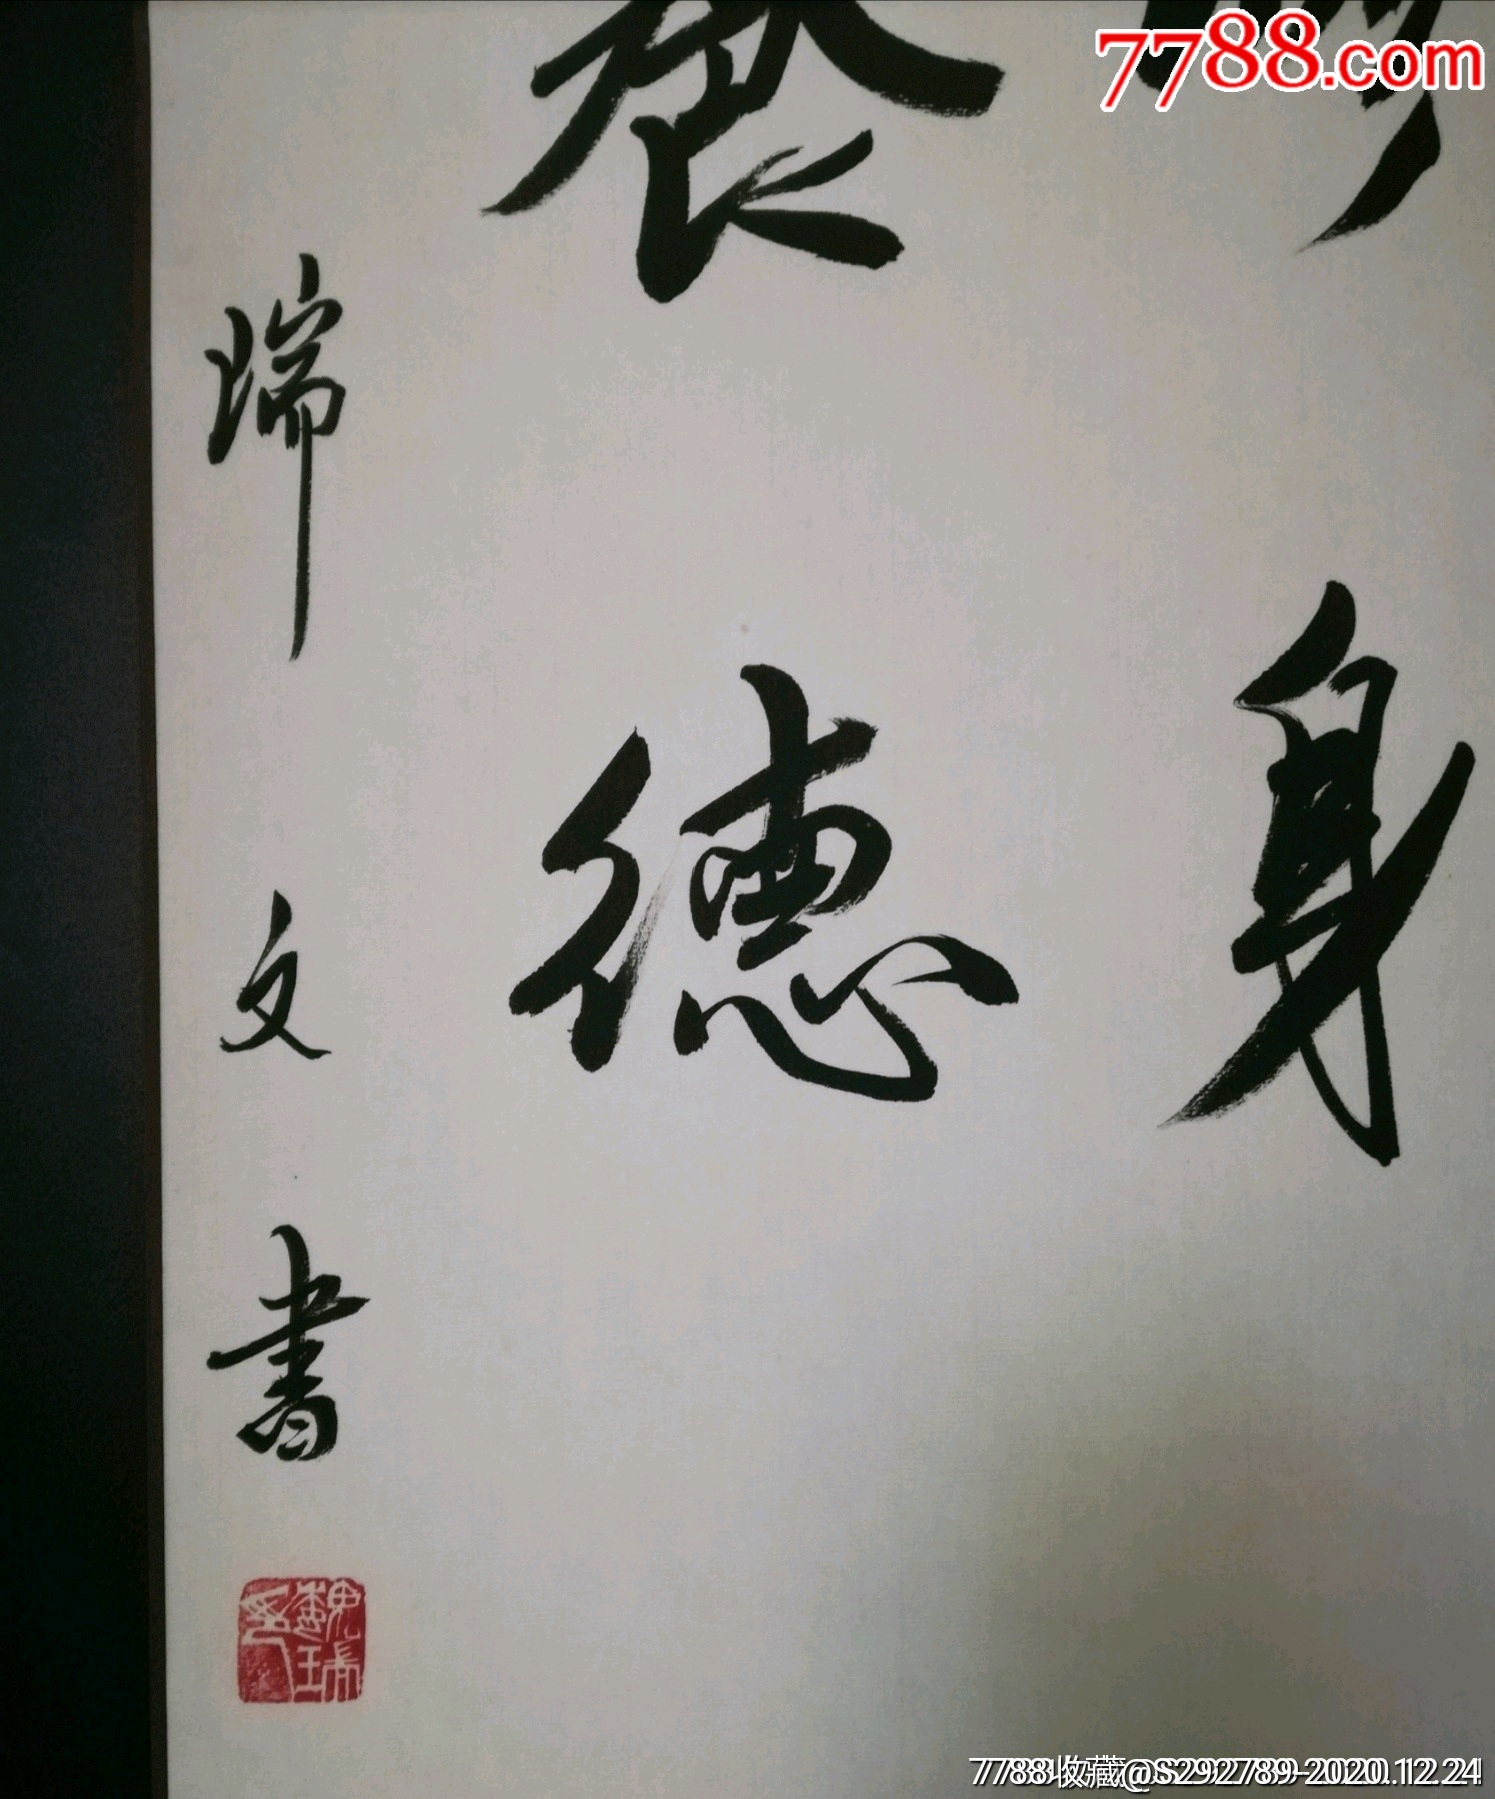 7788.com
身
養德
瑞文書
魏瑞
7788收藏@S292789-2020.12.24